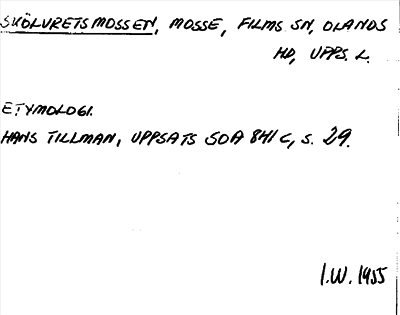 SKÖLVRETSMOSSEN, MOSSE, FILMS SN, OLANDS
HD, UPPS. L.
ETYMOLOGI.
HANS TILLMAN, UPPSATS SOA 841 C, S. 29.
I.W. 1955